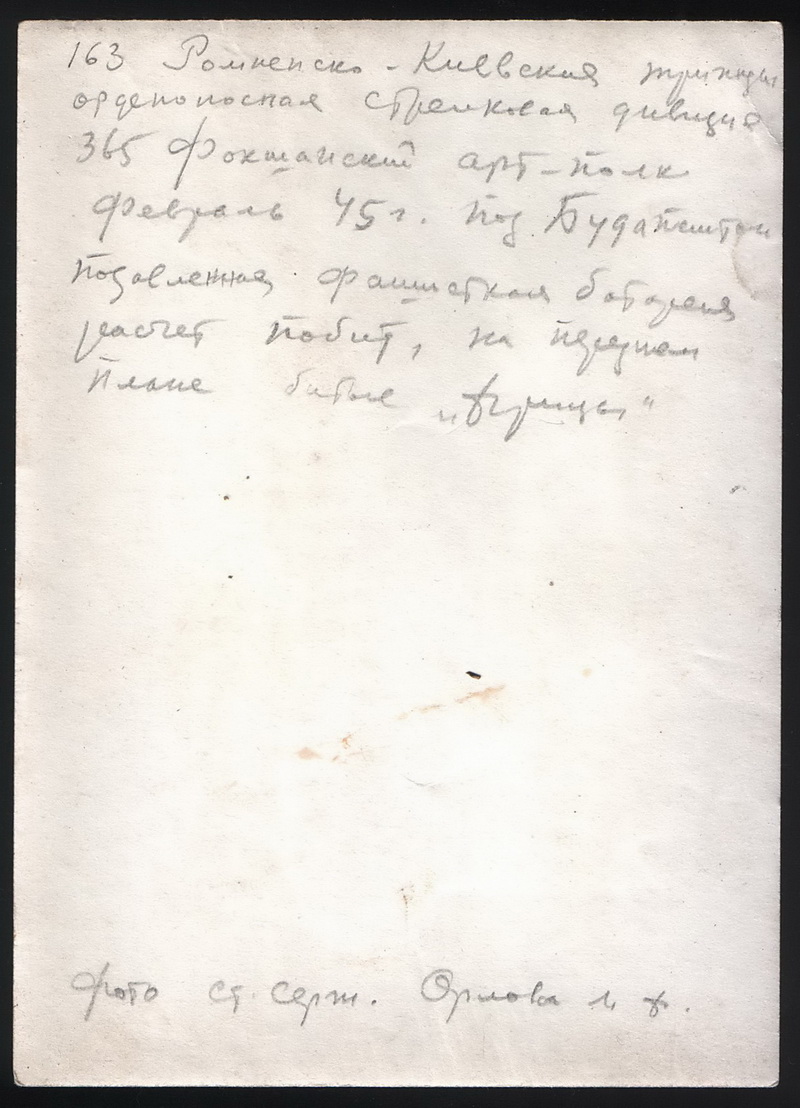 163 Ромненско-Киевская трижды
орденоносная стрелковая дивизия
365 Фокшанский арт-полк
Февраль 45 г. под Будапештом
подавленная фашисткая батарея
расчет побит, на переднем
плане битые „фрицы"
Фото ст. серж. Орлова